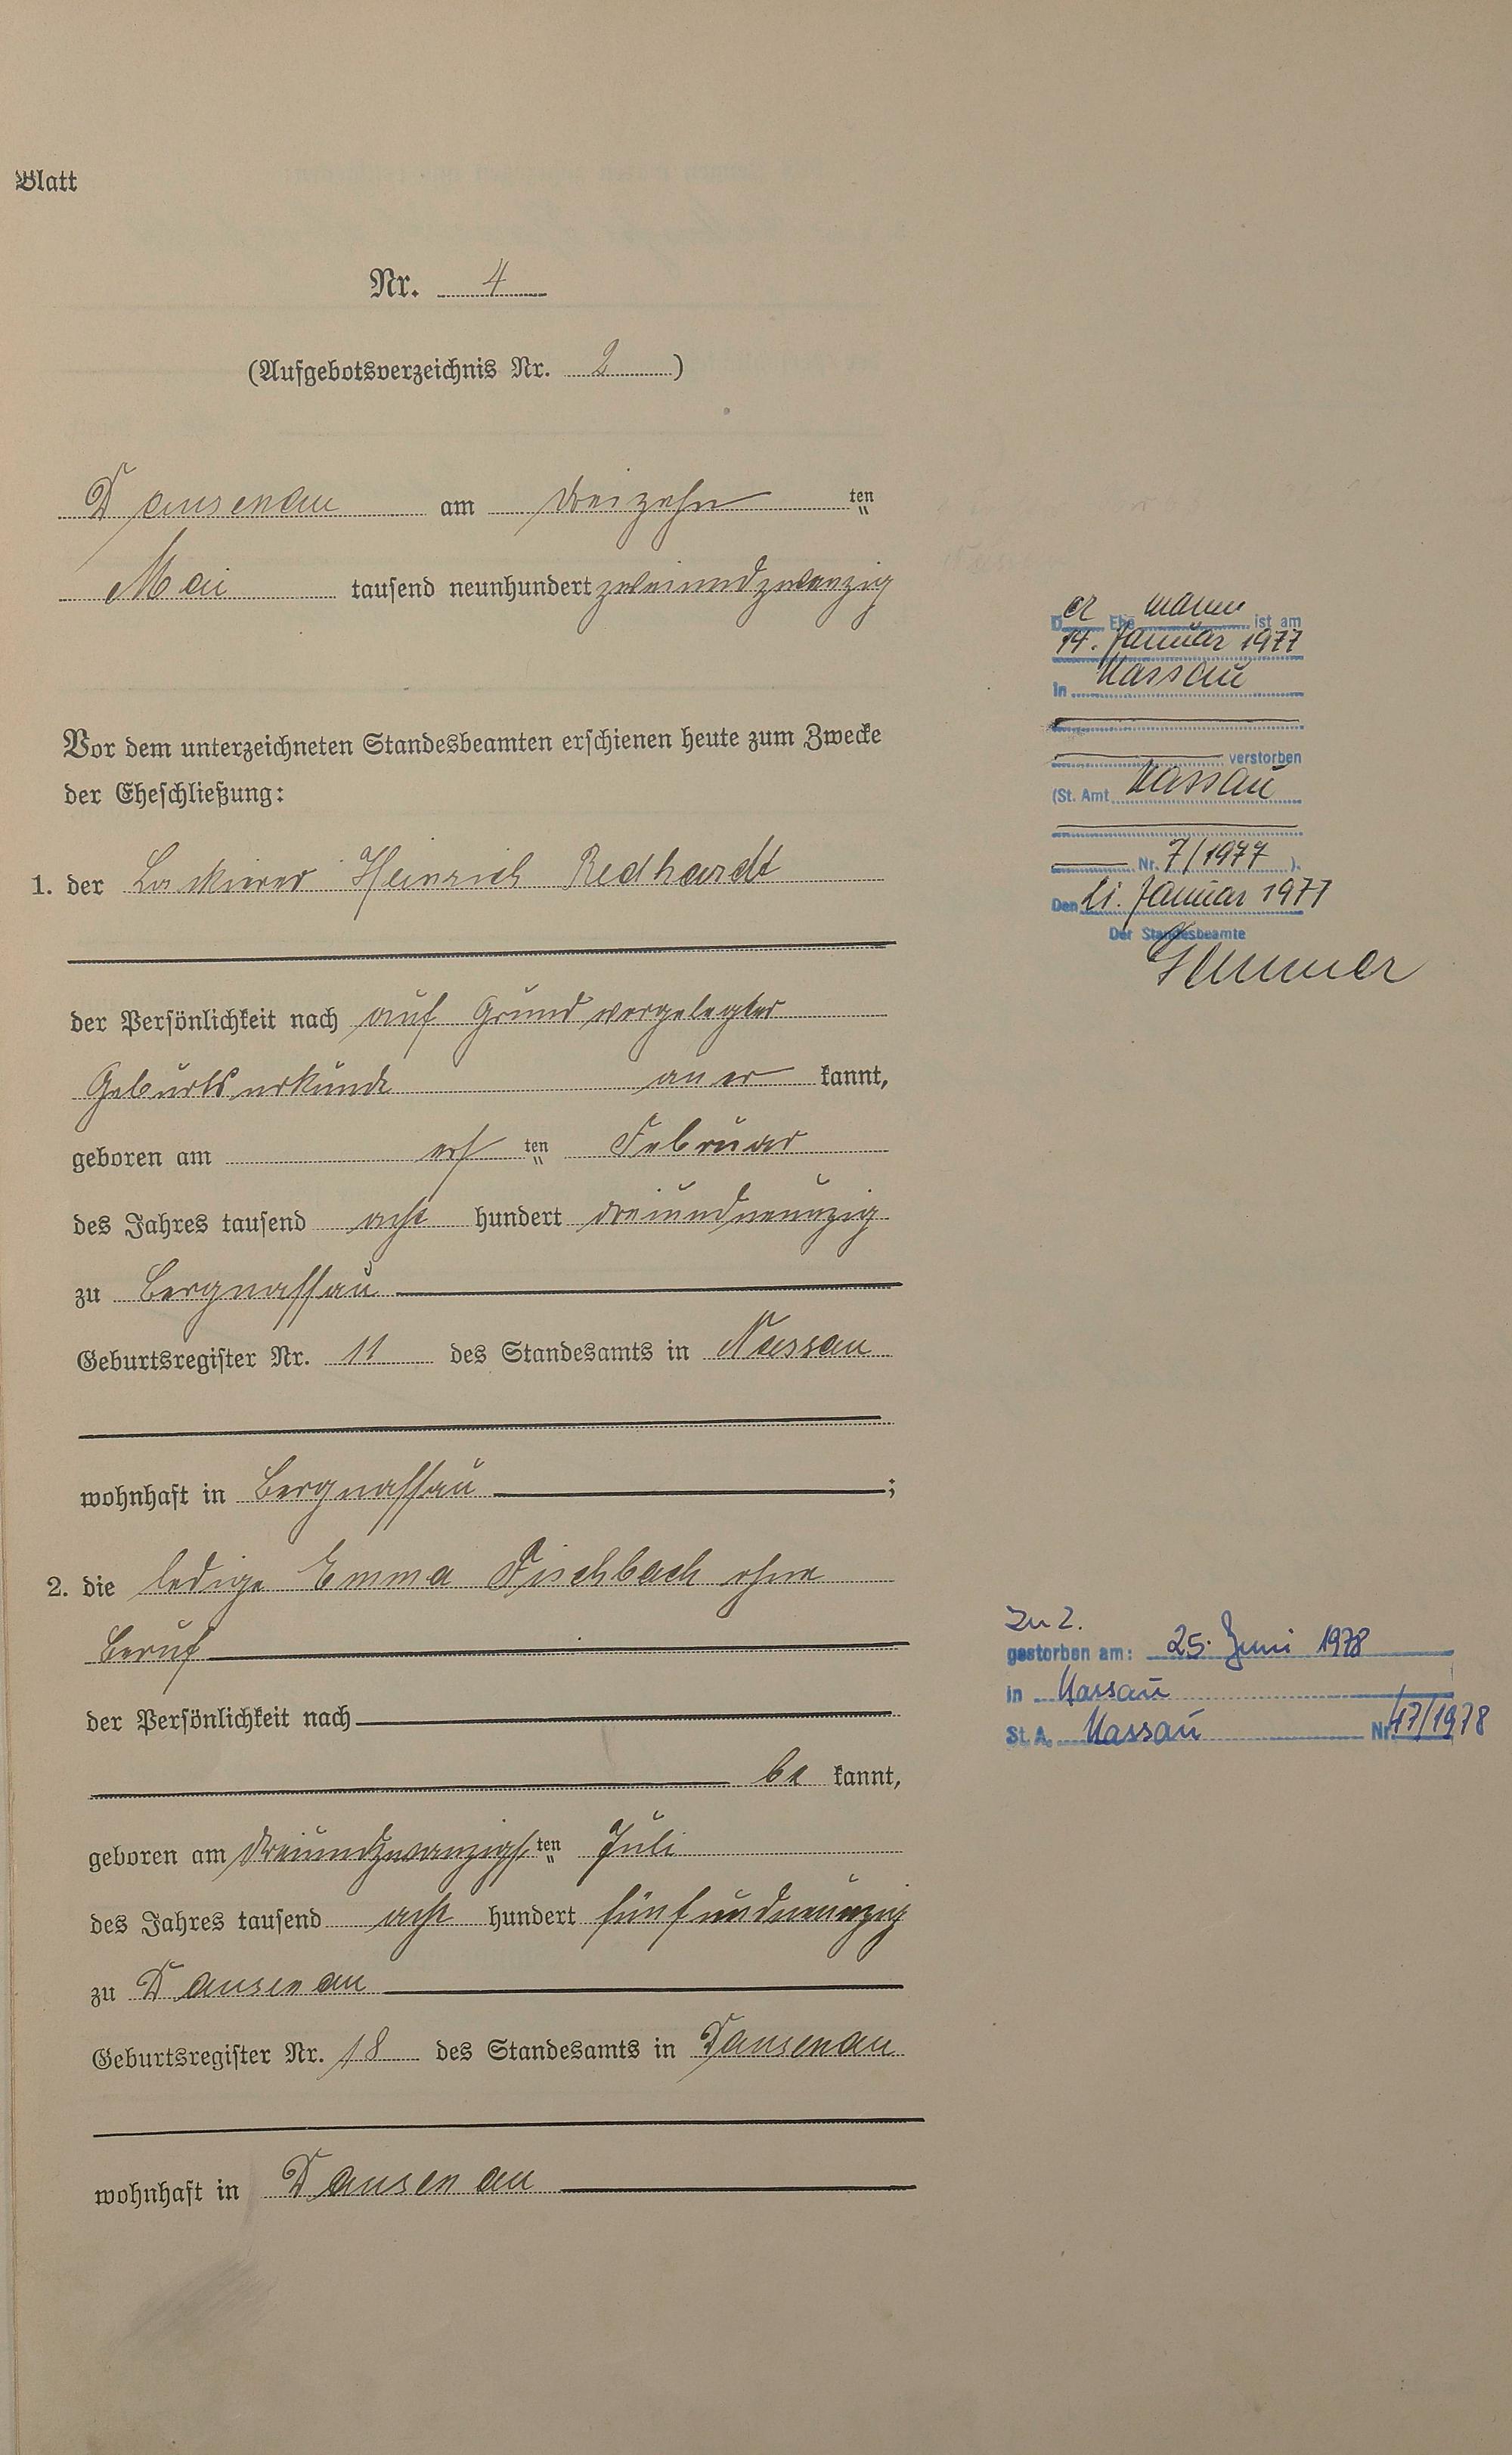 Blatt
Nr. 4
(Aufgebotsverzeichnis Nr. 2)
Dausenau am dreizehn ten
Mai tausend neunhundert zweiundzwanzig
Vor dem unterzeichneten Standesbeamten erschienen heute zum Zwecke
der Eheschließung:
1. der Lackierer Heinrich Redhardt
der Persönlichkeit nach auf Grund vorgelegter
Geburtsurkunde aner kannt,
geboren am ten Februar
des Jahres tausend acht hundert dreiundneunzig
zu Bergnassau
Geburtsregister Nr. 11 des Standesamts in Nassau
wohnhaft in Bergnassau ;
2. die ledige Emma Fischbach ohne
Beruf
der Persönlichkeit nach
be kannt,
geboren am dreiundzwanzigs ten Juli
des Jahres tausend acht hundert fünfundneunzig
zu Dausenau
Geburtsregister Nr. 18 des Standesamts in Dausenau
wohnhaft in Dausenau
Der Ehe mann ist am
14. Januar 1977
in Nassau
verstorben
(St. Amt Nassau
Nr. 7/1977 ).
Den 21. Januar 1977
Der Standesbeamte
Zu 2.
gestorben am: 25. Juni 1978
in Nassau
St. A. Nassau Nr. 47/1978